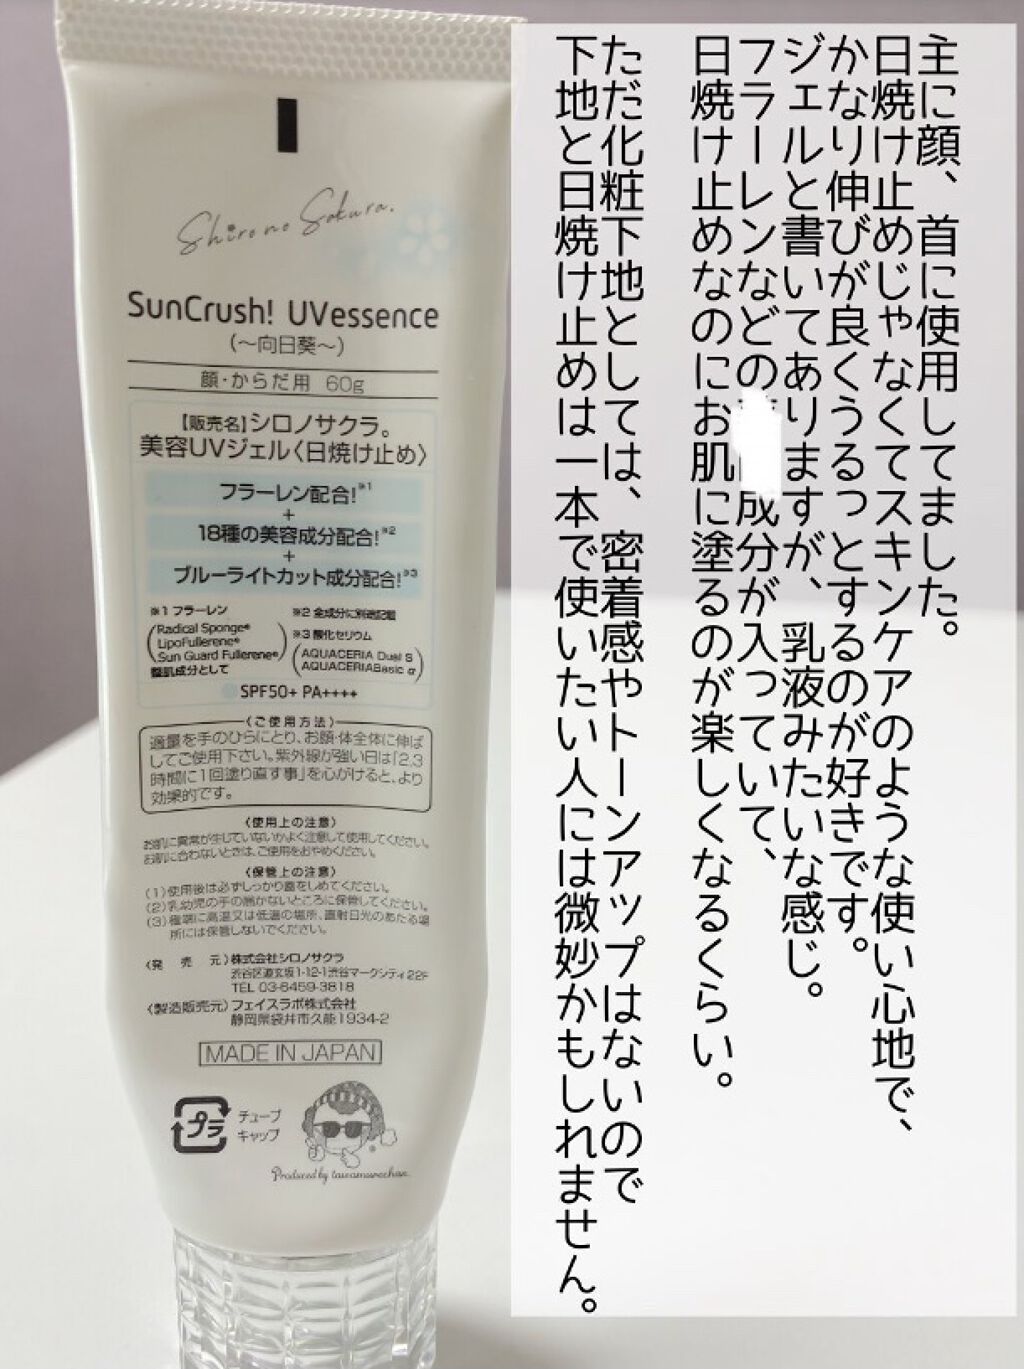 Shirono Sakura.
SunCrush! UVessence
(〜向日葵〜)
顔・からだ用 60g
【販売名】シロノサクラ。
美容UVジェル〈日焼け止め〉
フラーレン配合!※1
+
18種の美容成分配合!※2
+
ブルーライトカット成分配合!※3
※1 フラーレン
(Radical Sponge®
LipoFullerene®
Sun Guard Fullerene®)
整肌成分として
※2 全成分に別途記載
※3 酸化セリウム
(AQUACERIA Dual S
AQUACERIABasic α)
SPF50+ PA++++
〈ご使用方法〉
適量を手のひらにとり、お顔・体全体に伸ば
してご使用下さい。紫外線が強い日は「2,3
時間に1回塗り直す事」を心がけると、より
効果的です。
〈使用上の注意〉
お肌に異常が生じていないかよく注意して使用してください。
お肌に合わないときは、ご使用をおやめください。
〈保管上の注意〉
(1)使用後は必ずしっかり蓋をしめてください。
(2)乳幼児の手の届かないところに保管してください。
(3)極端に高温又は低温の場所、直射日光のあたる場
所には保管しないでください。
〈発売元〉株式会社シロノサクラ
渋谷区道玄坂1-12-1渋谷マークシティ22F
TEL 03-6459-3818
〈製造販売元〉フェイスラボ株式会社
静岡県袋井市久能1934-2
MADE IN JAPAN
プラ
チューブ
キャップ
Produced by
主に顔、首に使用してました。
日焼け止めじゃなくてスキンケアのような使い心地で、
かなり伸びが良くうるっとするのが好きです。
ジェルと書いてありますが、乳液みたいな感じ。
フラーレンなどの成分が入っていて、
日焼け止めなのにお肌に塗るのが楽しくなるくらい。
ただ化粧下地としては、密着感やトーンアップはないので
下地と日焼け止めは一本で使いたい人には微妙かもしれません。